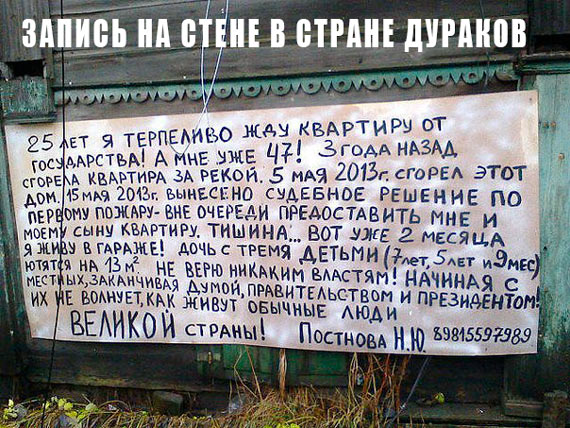 ЗАПИСЬ НА СТЕНЕ В СТРАНЕ ДУРАКОВ
25 ЛЕТ Я ТЕРПЕЛИВО ЖДУ КВАРТИРУ ОТ
ГОСУДАРСТВА! А МНЕ УЖЕ 47! 3 ГОДА НАЗАД
СГОРЕЛА КВАРТИРА ЗА РЕКОЙ. 5 МАЯ 2013г. СГОРЕЛ ЭТОТ
ДОМ. 15 МАЯ 2013г. ВЫНЕСЕНО СУДЕБНОЕ РЕШЕНИЕ ПО
ПЕРВОМУ ПОЖАРУ - ВНЕ ОЧЕРЕДИ ПРЕДОСТАВИТЬ МНЕ И
МОЕМУ СЫНУ КВАРТИРУ. ТИШИНА... ВОТ УЖЕ 2 МЕСЯЦА
Я ЖИВУ В ГАРАЖЕ! ДОЧЬ С ТРЕМЯ ДЕТЬМИ (7 лет, 5 лет и 9 мес)
ЮТЯТСЯ НА 13 м². НЕ ВЕРЮ НИКАКИМ ВЛАСТЯМ! НАЧИНАЯ С
МЕСТНЫХ, ЗАКАНЧИВАЯ ДУМОЙ, ПРАВИТЕЛЬСТВОМ И ПРЕЗИДЕНТОМ!
ИХ НЕ ВОЛНУЕТ, КАК ЖИВУТ ОБЫЧНЫЕ ЛЮДИ
ВЕЛИКОЙ СТРАНЫ! ПОСТНОВА Н.Ю. 89815597989